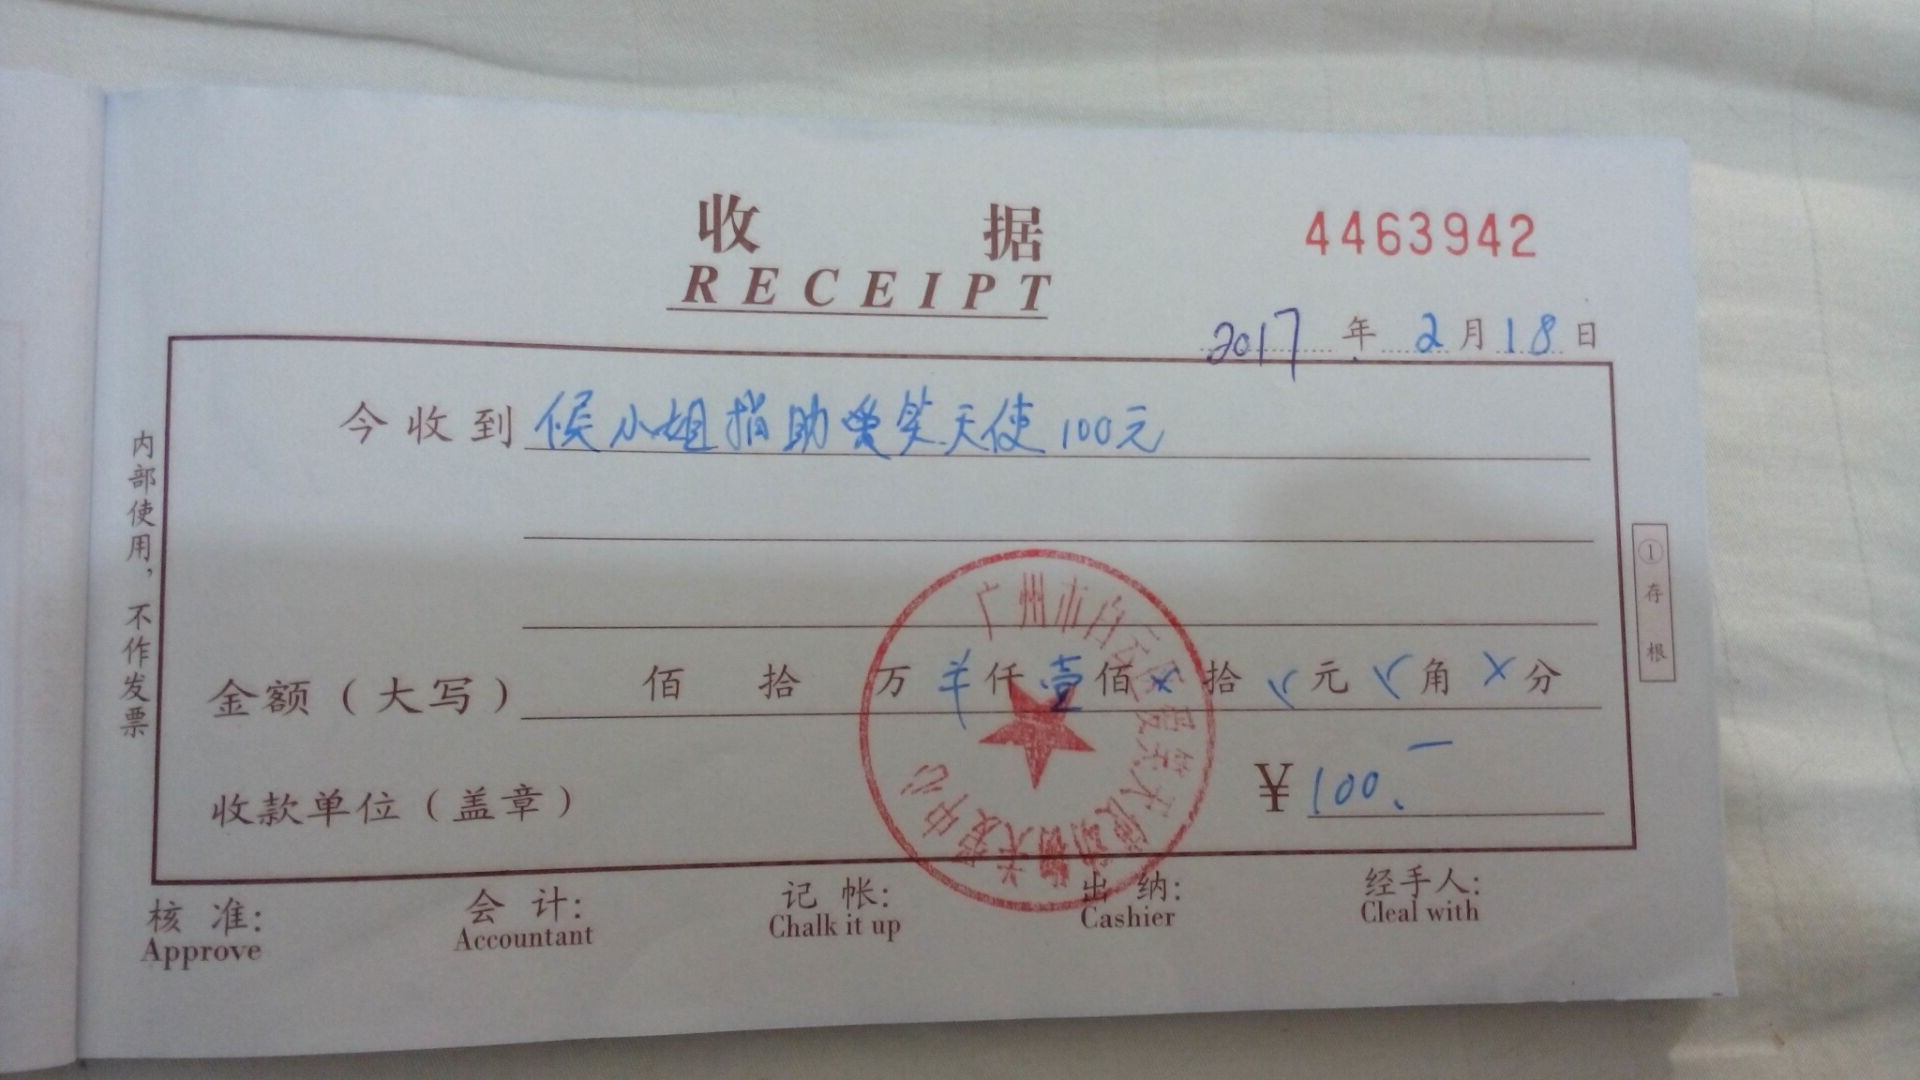 收 据
RECEIPT
4463942
2017 年 2 月 18 日
今收到 候小姐捐助爱笑天使100元
金额(大写) 佰 拾 万 羊 仟 壹 佰 × 拾 × 元 × 角 × 分
收款单位(盖章)
¥ 100.—
广州市白云区爱笑天使动物关爱中心
核 准:
Approve
会 计:
Accountant
记 帐:
Chalk it up
出 纳:
Cashier
经手人:
Cleal with
内部使用,不作发票
① 存根